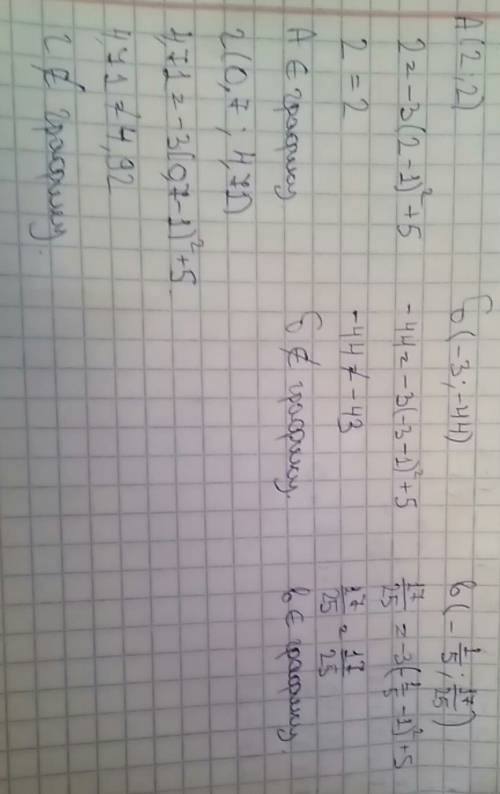 А(2;2)
2=-3(2-1)²+5
2=2
А ∈ графику
б(-3;-44)
-44=-3(-3-1)²+5
-44≠-43
б ∉ графику.
в(-1/5; 17/25)
17/25=-3(1/5-1)²+5
17/25=17/25
в ∈ графику.
г(0,7; 4,71)
4,71=-3(0,7-1)²+5
4,71≠4,92
г ∉ графику.